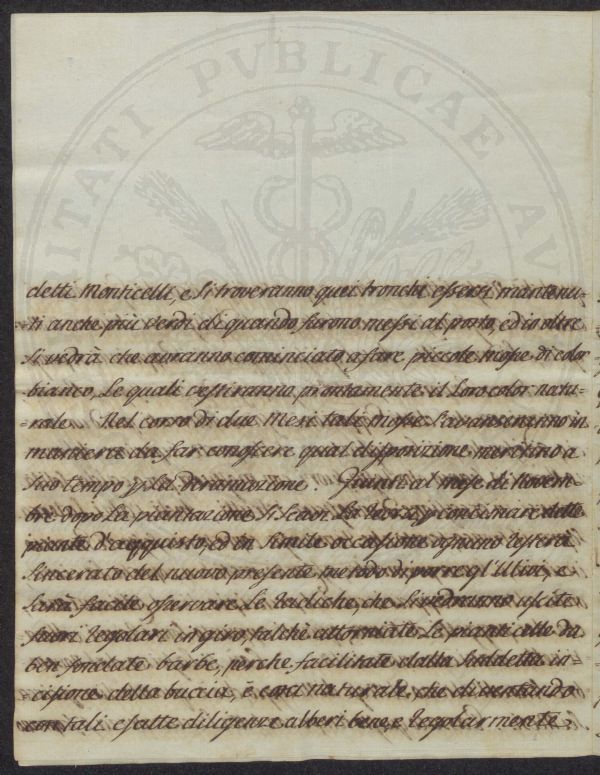 ITATI PVBLICAE AV
detti Monticelli, e si troveranno quei tronchi essersi mantenu-
-ti anche più verdi di quando furono messi al posto, ed in oltre
si vedrà che avranno cominciato a fare piccole mosse di color
bianco, le quali vestiranno prontamente il loro color natu-
-rale. Nel corso di due mesi tali mosse s'avanzeranno in
maniera da far conoscere qual disposizione meritino a
suo tempo p. la diramazione. Giunti al mese di Novem-
bre dopo la piantazione si scavi la terra, p. concimare dette
piante d'acquisto, ed in simile occasione ognuno resterà
sincerato del nuovo presente metodo di porre gl'Ulivi, e
sarà facile osservare le radiche, che si vedranno uscite
fuori regolari in giro, talchè attorniate le pianticelle da
ben fondate barbe, perche facilitate dalla suddetta in-
-cisione della buccia, è cosa naturale, che diventando
con tali esatte diligenze alberi bene, e regolarmente